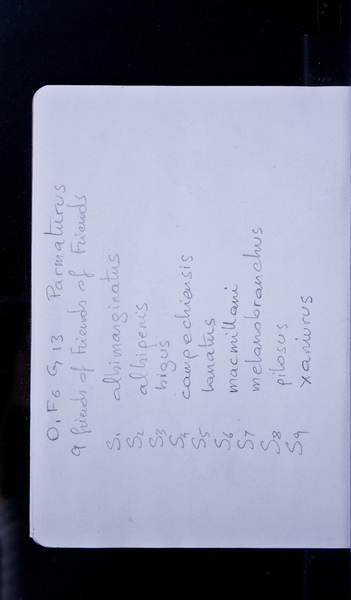 O, F6 G13 Parmaturus
9 friends of Friends of Friends
S1 albimarginatus
S2 albipenis
S3 bigus
S4 campechiensis
S5 lanatus
S6 macmillani
S7 melanobranchus
S8 pilosus
S9 xaniurus